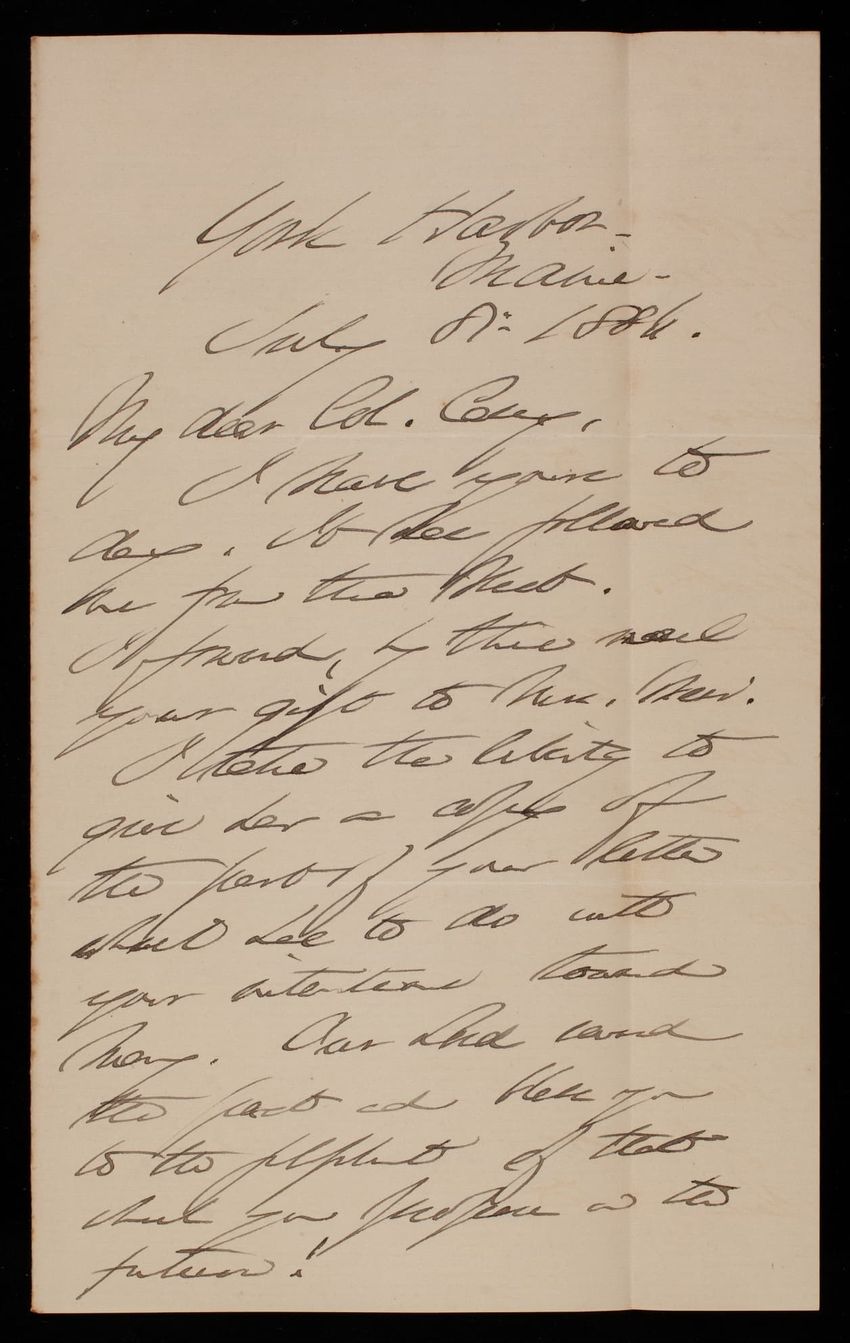 York Harbor -
Maine -
July 8th 1886.
My dear Col. Casey,
I have yours to
day. It has followed
me from the West.
I forward, by this mail
your gift to Mrs. Weir.
I take the liberty to
give her a copy of
the part of your letter
which has to do with
your intentions toward
Mary. Our Lord
the past and bless you
to the fulfilment of that
which you propose in the
future!